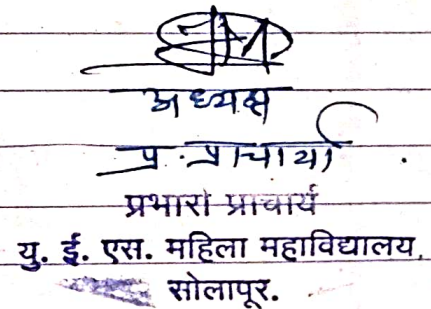 अध्यक्ष
प्र. प्राचार्या
प्रभारी प्राचार्य
यु. ई. एस. महिला महाविद्यालय,
सोलापूर.